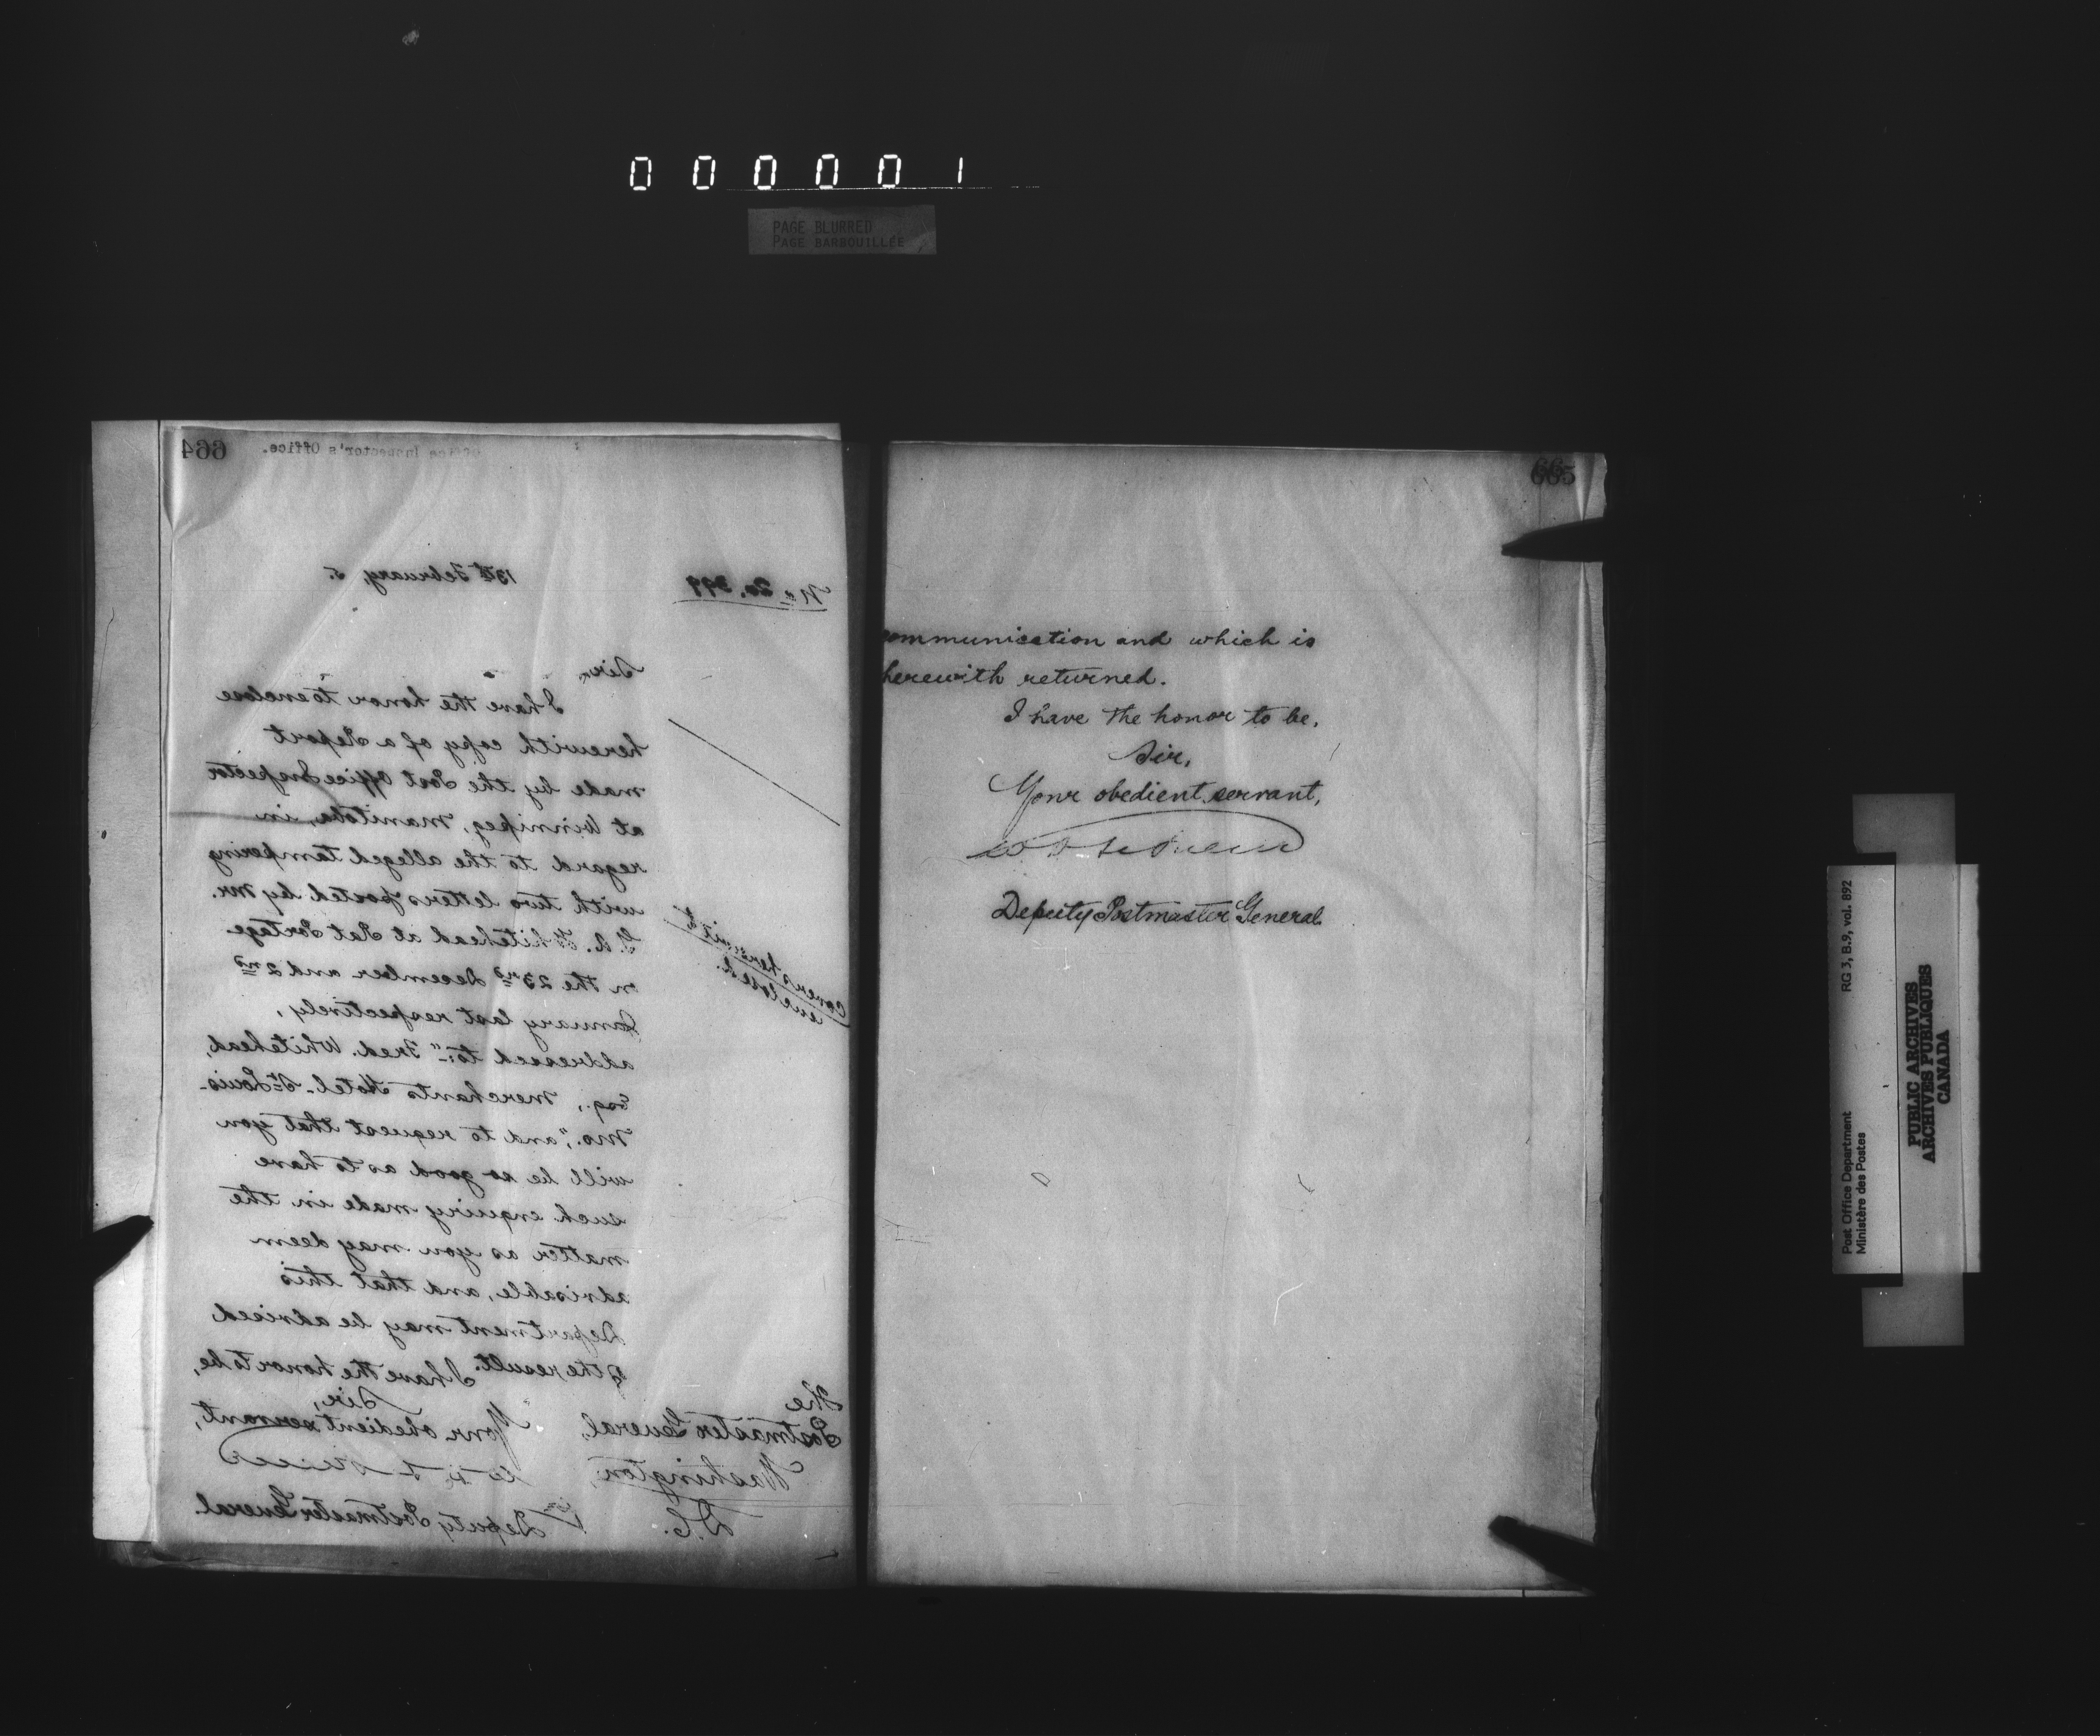 000001
PAGE BLURRED
PAGE BARBOUILLÉE
664
Office Inspector's Office.
No 20,399
13th February, 5.
Sir,
I have the honor to enclose
herewith copy of a Report
made by the Post Office Inspector
at Winnipeg, Manitoba, in
regard to the alleged tampering
with two letters posted by Mr.
Whitehead at Rat Portage
on the 23rd December and 2nd
January last respectively,
addressed to:- "Fred. Whitehead,
Esq., Merchants Hotel - St Louis -
Mo.", and to request that you
will be so good as to have
such enquiry made in the
matter as you may deem
advisable, and that this
Department may be advised
of the result. I have the honor to be,
Sir,
Your obedient servant,
Deputy Postmaster General.
Covers herewith
enclosed.
The
Postmaster General,
Washington,
D.C.
665
communication and which is
herewith returned.
I have the honor to be,
Sir,
Your obedient servant,
Deputy Postmaster General
Post Office Department
Ministère des Postes
RG 3, B.9, vol. 892
PUBLIC ARCHIVES
ARCHIVES PUBLIQUES
CANADA